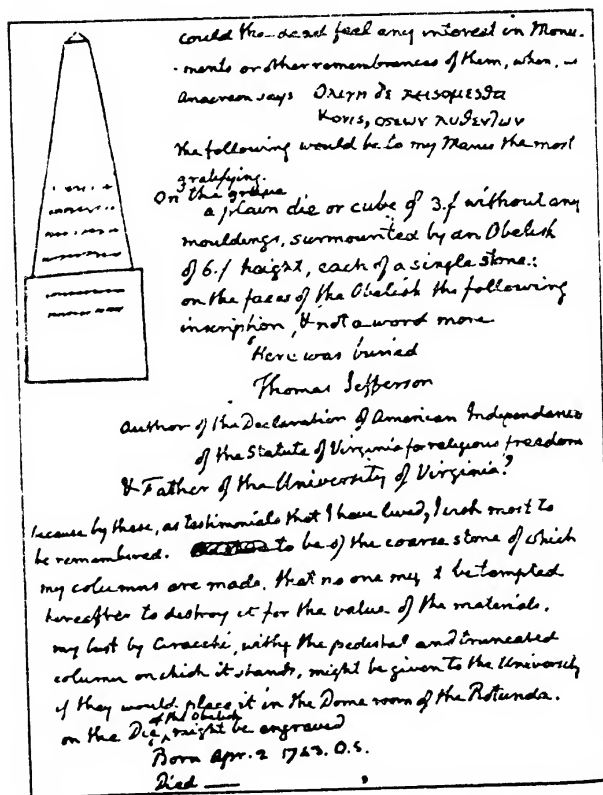 could the dead feel any interest in Monu-
-ments or other remembrances of them, when, as
Anacreon says Ολιγη δε κεισομεσθα
Κονις, οσεων λυθεντων
the following would be to my Manes the most
gratifying.
On the grave
a plain die or cube of 3.f without any
mouldings, surmounted by an Obelisk
of 6.f height, each of a single stone:
on the faces of the Obelisk the following
inscription, & not a word more
'Here was buried
Thomas Jefferson
Author of the Declaration of American Independance
of the Statute of Virginia for religious freedom
& Father of the University of Virginia.'
because by these, as testimonials that I have lived, I wish most to
be remembered. to be of the coarse stone of which
my columns are made, that no one might be tempted
hereafter to destroy it for the value of the materials.
my bust by Ciracchi, with the pedestal and truncated
column on which it stands, might be given to the University
if they would place it in the Dome room of the Rotunda.
on the Die of the Obelisk might be engraved
Born Apr. 2 1743. O.S.
Died ——